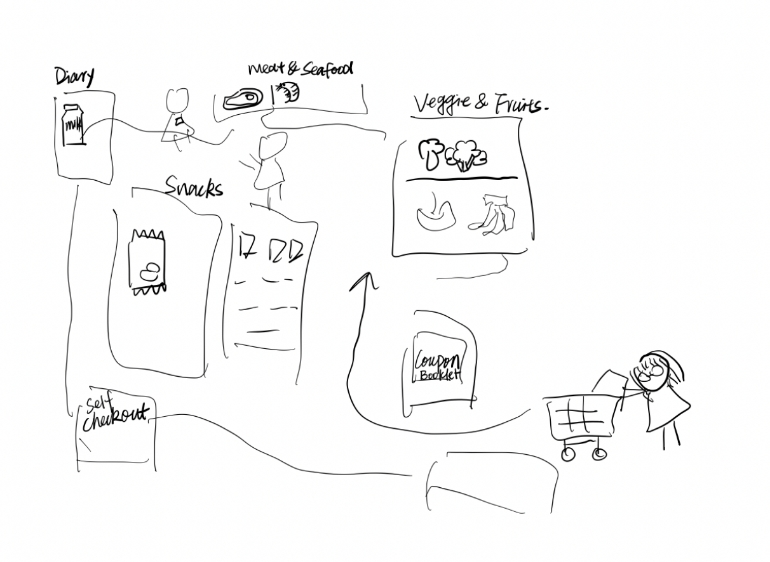 Diary
Meat & Seafood
Veggie & Fruits.
milk
Snacks
Coupon
Booklet
Self
Checkout